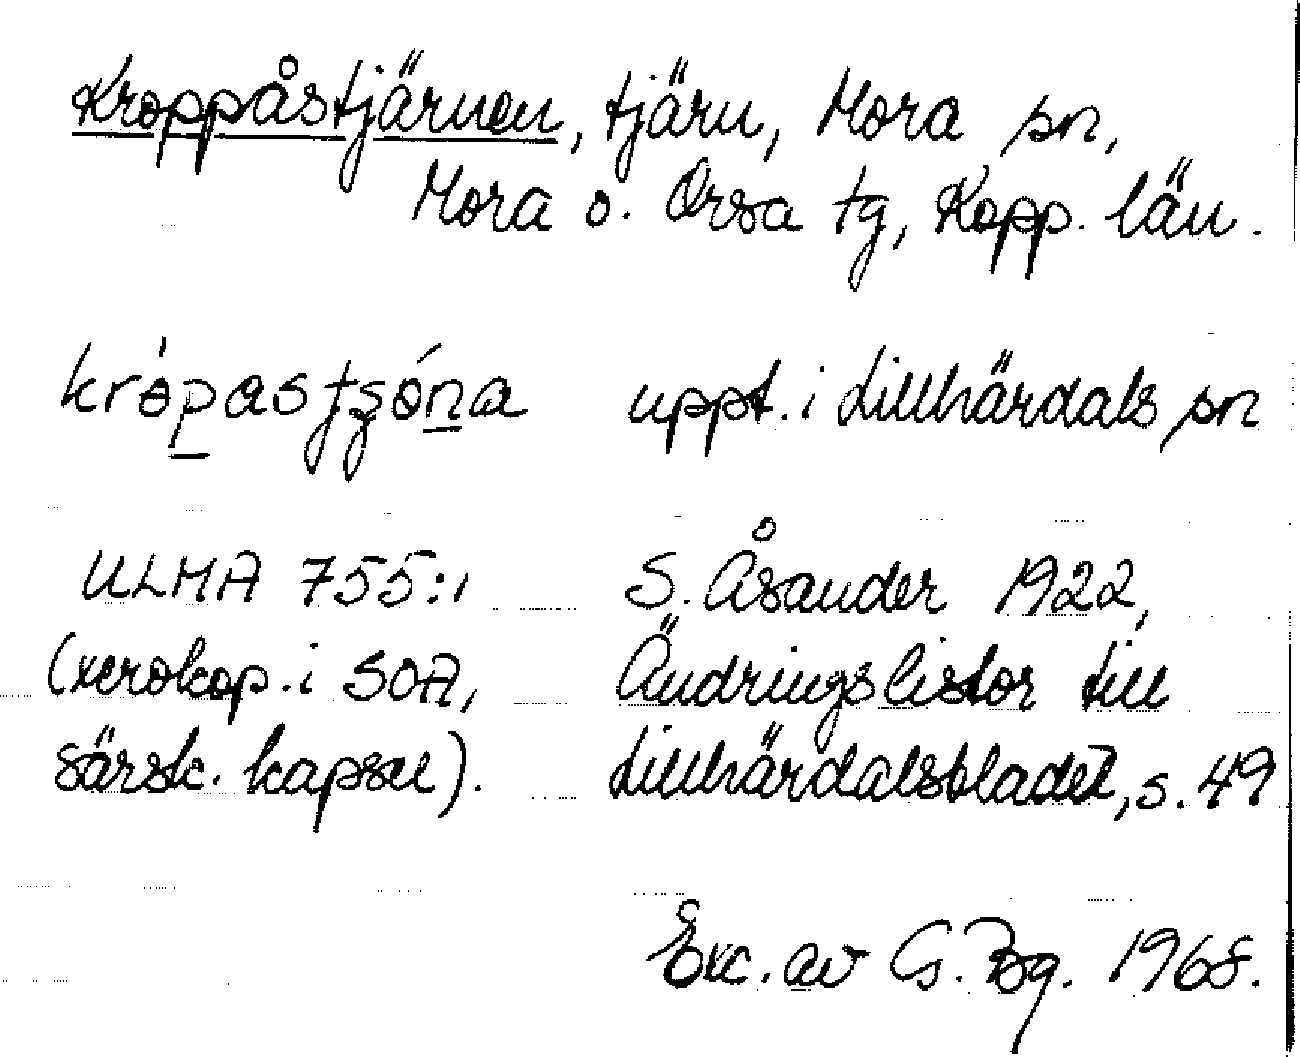 Kroppåstjärnen, tjärn, Mora sn,
Mora o. Orsa tg, Kopp. län.
uppt. i Lillhärdals sn
ULMA 755:1 S. Åsander 1922,
(xerokop. i SOA, Ändringslistor till
särsk. kapsel). Lillhärdalsbladet, s. 49
Exc. av G. Bg. 1968.